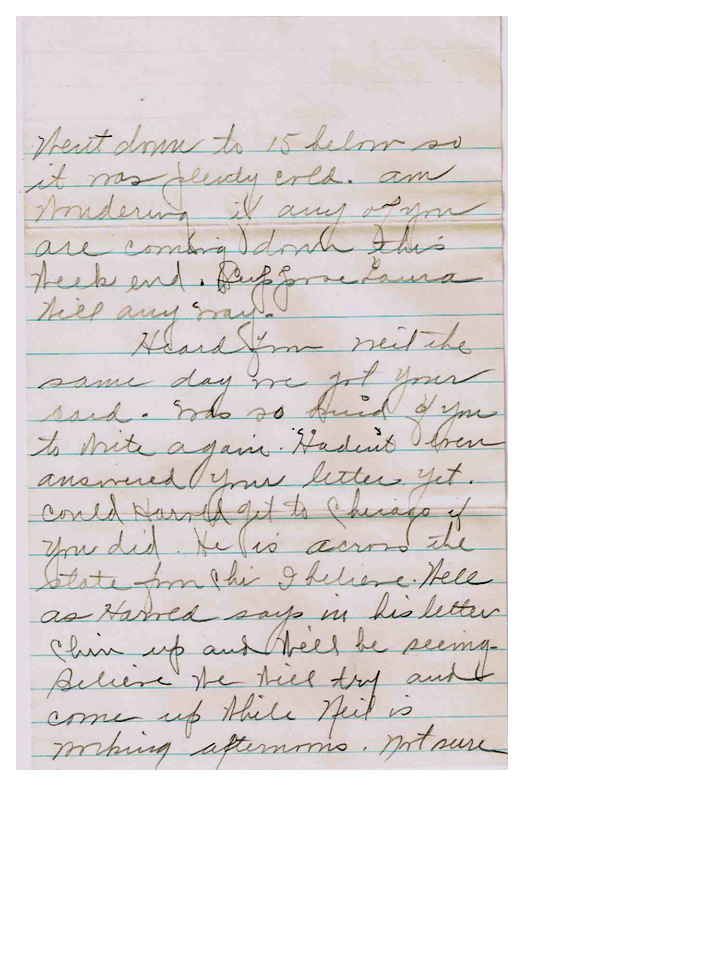 Went down to 15 below so
it was plenty cold. am
wondering if any of you
are coming down this
week end. Suppose Laura
will any way.
Heard from Neil the
same day we got your
card. Was so kind of you
to write again. Hadent even
answered your letter yet.
could Harold get to Chicago if
you did. He is across the
state from Chi I believe. Well
as Harold says in his letter
Chin up and we'll be seeing.
Believe we will try and
come up while Neil is
working afternoons. Not sure